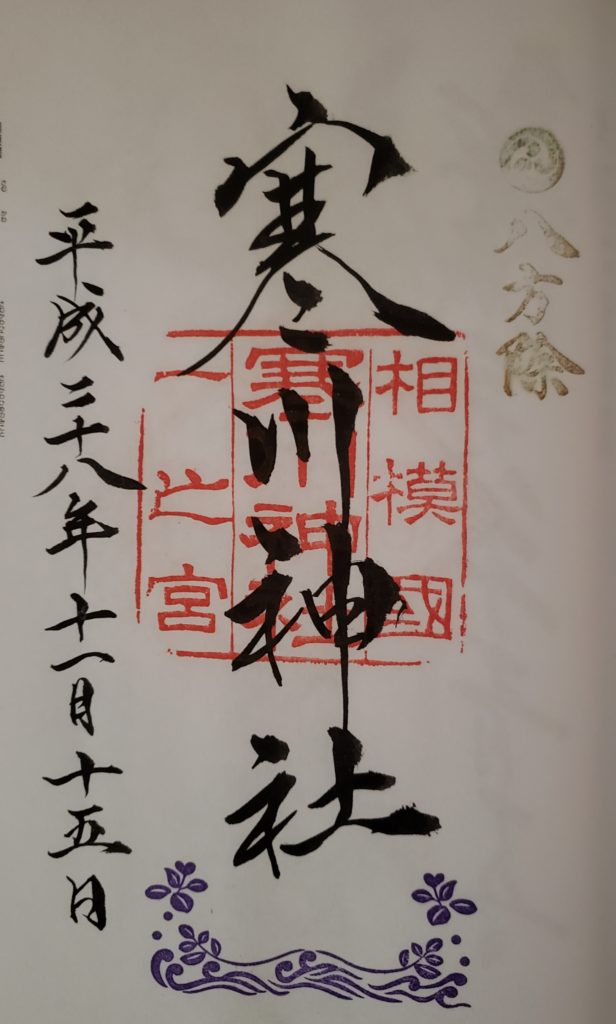 八方除
相模國
寒川神社
一之宮
寒川神社
平成二十八年十一月十五日